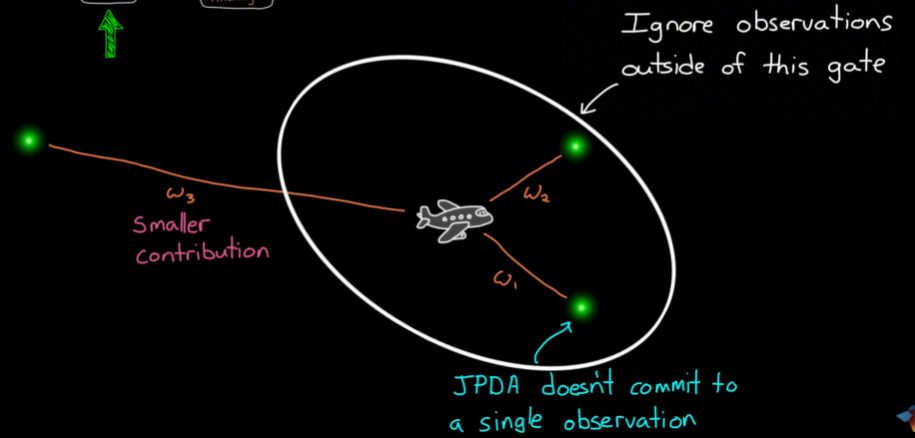 Ignore observations
outside of this gate
ω₃
Smaller
contribution
ω₂
ω₁
JPDA doesn't commit to
a single observation